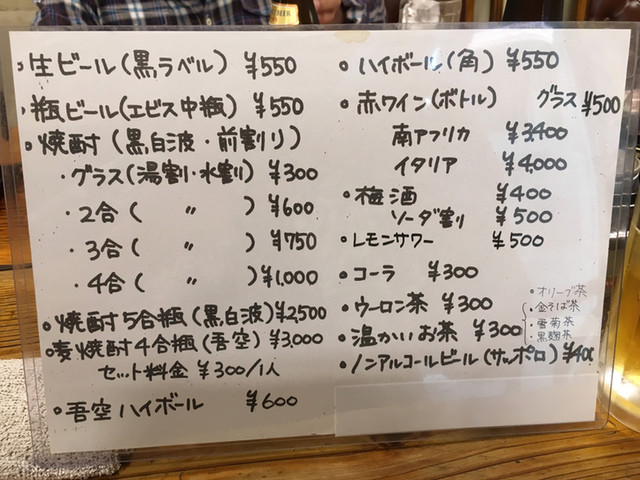 ・生ビール(黒ラベル) ¥550
・瓶ビール(エビス中瓶) ¥550
・焼酎(黒白波・前割り)
・グラス(湯割・水割) ¥300
・2合( 〃 ) ¥600
・3合( 〃 ) ¥750
・4合( 〃 ) ¥1,000
・焼酎5合瓶(黒白波) ¥2,500
・麦焼酎4合瓶(吾空) ¥3,000
セット料金 ¥300/1人
・吾空ハイボール ¥600
・ハイボール(角) ¥550
・赤ワイン(ボトル) グラス ¥500
南アフリカ ¥3,400
イタリア ¥4,000
・梅酒 ¥400
ソーダ割り ¥500
・レモンサワー ¥500
・コーラ ¥300
・ウーロン茶 ¥300
・温かいお茶 ¥300
・オリーブ茶
・金そば茶
・雪菊茶
・黒麹茶
・ノンアルコールビール(サッポロ) ¥400